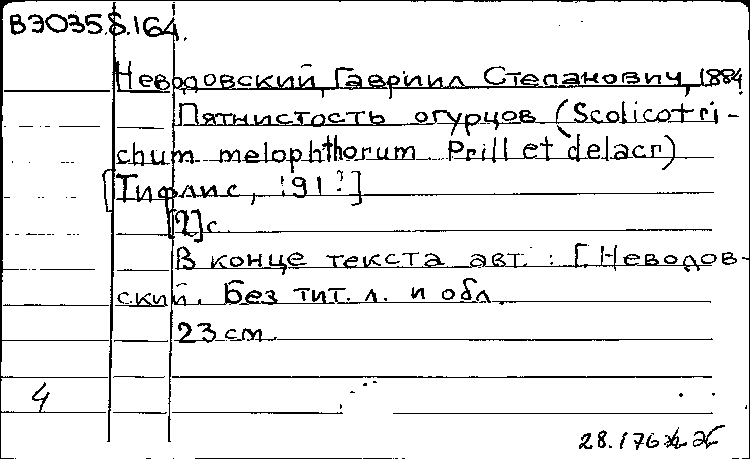 ВЭ035.S.164.
Неводовский, Гавриил Степанович, 1884
Пятнистость огурцов (Scolicotri-
chum melophthorum Prill et delacr)
[Тифлис, 191?]
[2]с.
В конце текста авт. : Г. Неводов-
ский. Без тит. л. и обл.
23 см.
4
28.176